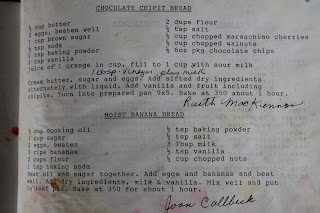 CHOCOLATE CHIPIT BREAD
½ cup butter 2 cups flour
2 eggs, beaten well ½ tsp salt
1 cup brown sugar ½ cup chopped maraschino cherries
½ tsp soda ½ cup chopped walnuts
½ tsp baking powder ½ oz pkg chocolate chips
1 tsp vanilla
juice of 1 orange in cup, fill to 1 cup with sour milk
1 tbsp vinegar plus milk
Cream butter, sugar and eggs. Add sifted dry ingredients
alternately with liquid. Add vanilla and fruit including
chipits. Turn into prepared pan 9x5. Bake at 350 about 1 hour.
Ruth MacKinnon
MOIST BANANA BREAD
cup cooking oil ½ tsp baking powder
cup sugar ½ tsp salt
eggs, beaten 3 Tbsp milk
bananas ½ tsp vanilla
2 cups flour ½ cup chopped nuts
1 tsp baking soda
Beat oil and sugar together. Add eggs and bananas and beat
well. Add dry ingredients, milk & vanilla. Mix well and put
in loaf pan. Bake at 350 for about 1 hour.
Joan Callbeck